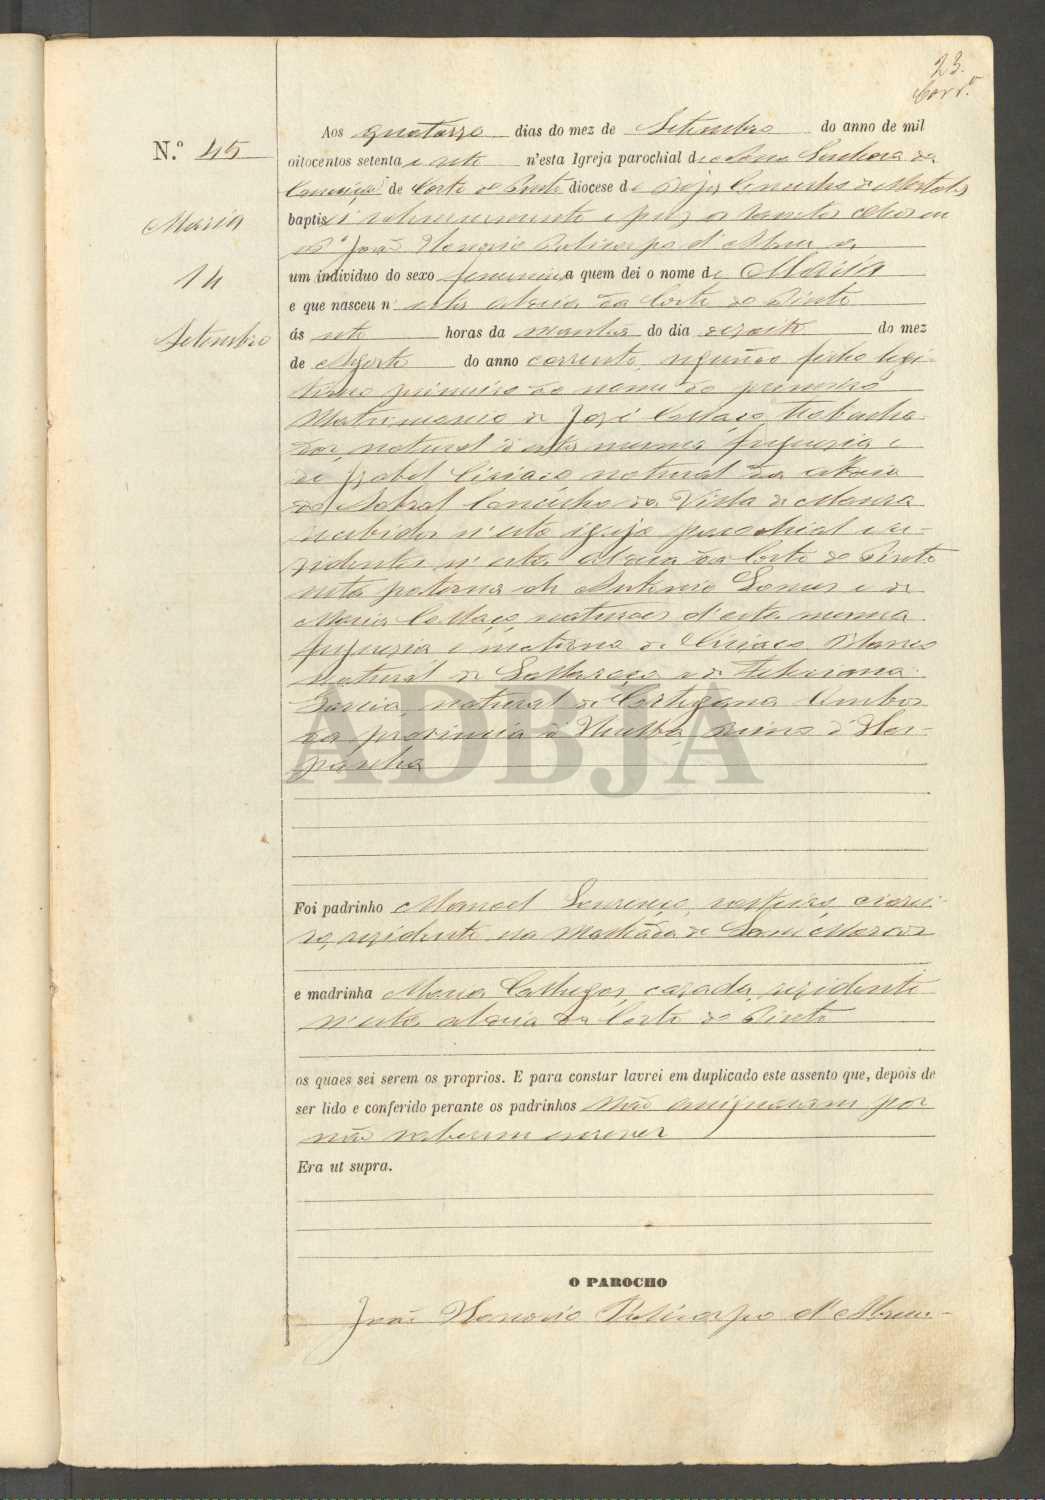 23.
Corr.º
N.º 45
Maria
14
Setembro
Aos quatorze dias do mez de Setembro do anno de mil
oitocentos setenta e sete n'esta Igreja parochial de Nossa Senhora da
Conceição de Corte do Pinto diocese de Beja Concelho de Mertola
baptisei solemnemente e puz os Santos Oleos eu
o P.º João Honorio Policarpo d'Abreu a
um individuo do sexo feminino a quem dei o nome de Maria
e que nasceu n'esta aldeia da Corte do Pinto
ás sete horas da manhã do dia dezoito do mez
de Agosto do anno corrente, segundo filho legi-
timo primeiro do nome do primeiro
Matrimonio de José Collaço, trabalha-
dor, natural d'esta mesma freguezia e
de Izabel Ciriaco natural da aldeia
do Sobral Concelho da Villa de Moura
recebidos n'esta igreja parochial e re-
zidentes n'esta aldeia da Corte do Pinto
neta paterna de Antonio Gomes e de
Maria Collaço, naturaes d'esta mesma
freguezia e materna de Ciriaco Blanco
natural de e de Feliciana
Garcia, natural de Cortegana ambos
da provincia d'Huelva, reino d'Hes-
panha
ADBJA
Foi padrinho Manoel Lourenço, solteiro,
rezidente na de Sam Marcos
e madrinha Maria Gallego, cazada, rezidente
n'esta aldeia da Corte do Pinto
os quaes sei serem os proprios. E para constar lavrei em duplicado este assento que, depois de
ser lido e conferido perante os padrinhos não assignaram por
não saberem escrever
Era ut supra.
O PAROCHO
João Honorio Policarpo d'Abreu